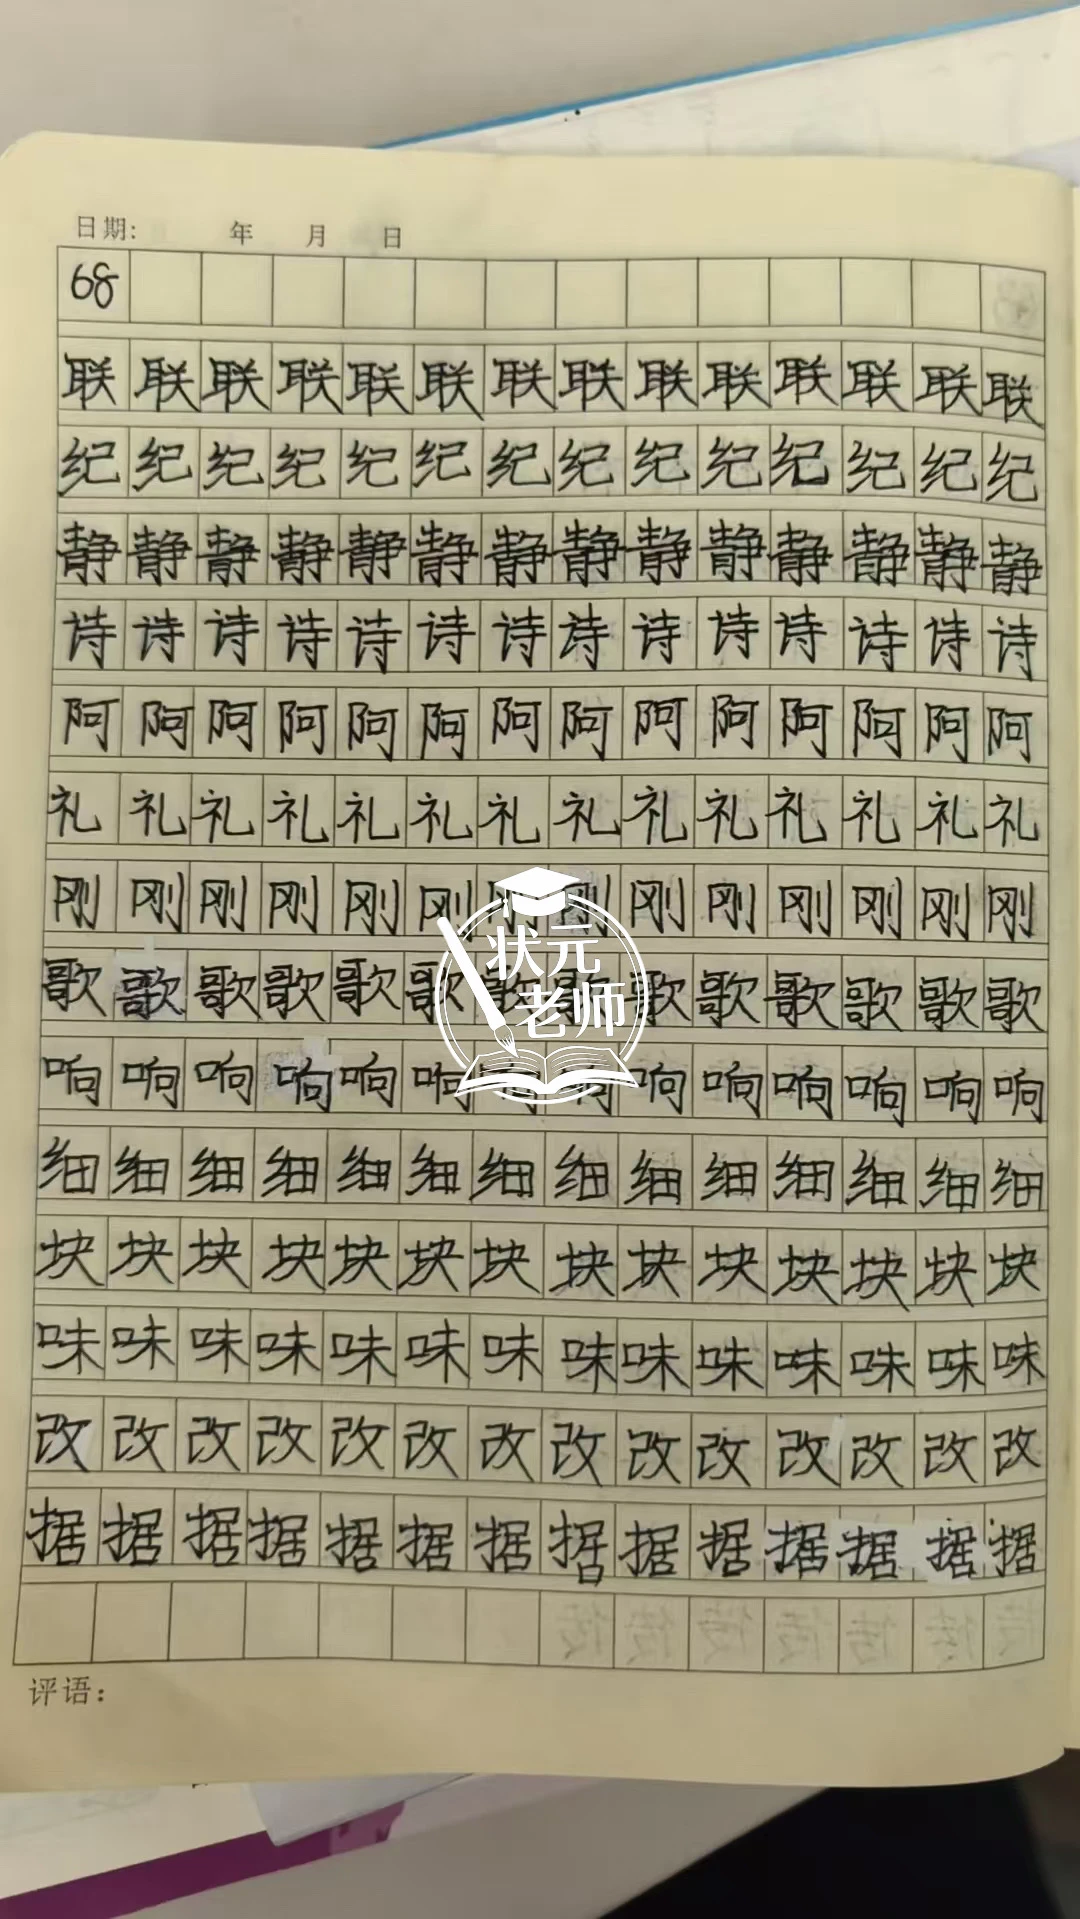 日期: 年 月 日
68
联联联联联联联联联联联联联联
纪纪纪纪纪纪纪纪纪纪纪纪纪纪
静静静静静静静静静静静静静静
诗诗诗诗诗诗诗诗诗诗诗诗诗诗
阿阿阿阿阿阿阿阿阿阿阿阿阿阿
礼礼礼礼礼礼礼礼礼礼礼礼礼礼
刚刚刚刚刚刚刚刚刚刚刚刚刚刚
歌歌歌歌歌歌歌歌歌歌歌歌歌歌
状元
老师
响响响响响响响响响响响响响响
细细细细细细细细细细细细细细
块块块块块块块块块块块块块块
味味味味味味味味味味味味味味
改改改改改改改改改改改改改改
据据据据据据据据据据据据据据
评语: